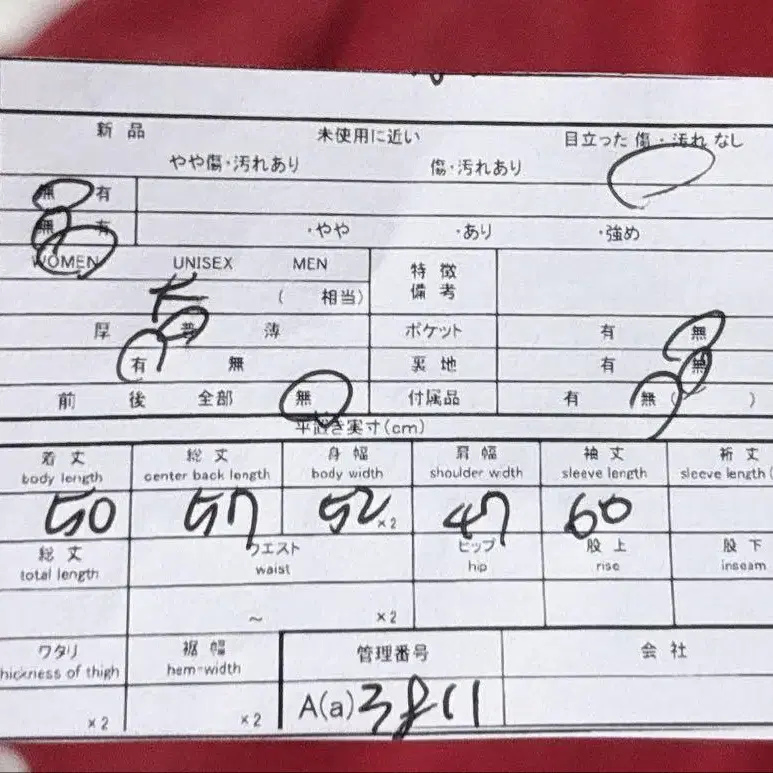 新品 未使用に近い 目立った傷・汚れなし
やや傷・汚れあり 傷・汚れあり
無 有
無 有 ・やや ・あり ・強め
WOMEN UNISEX MEN 特徴
備考
( 相当)
厚 普 薄 ポケット 有 無
有 無 裏地 有 無
前 後 全部 無 付属品 有 無 ( )
平置き実寸(cm)
着丈 総丈 身幅 肩幅 袖丈 裄丈
body length center back length body width shoulder width sleeve length sleeve length(
50 57 52 ×2 47 60
総丈 ウエスト ヒップ 股上 股下
total length waist hip rise inseam
~ ×2
ワタリ 裾幅 管理番号 会社
hickness of thigh hem-width
×2 ×2 A(a)